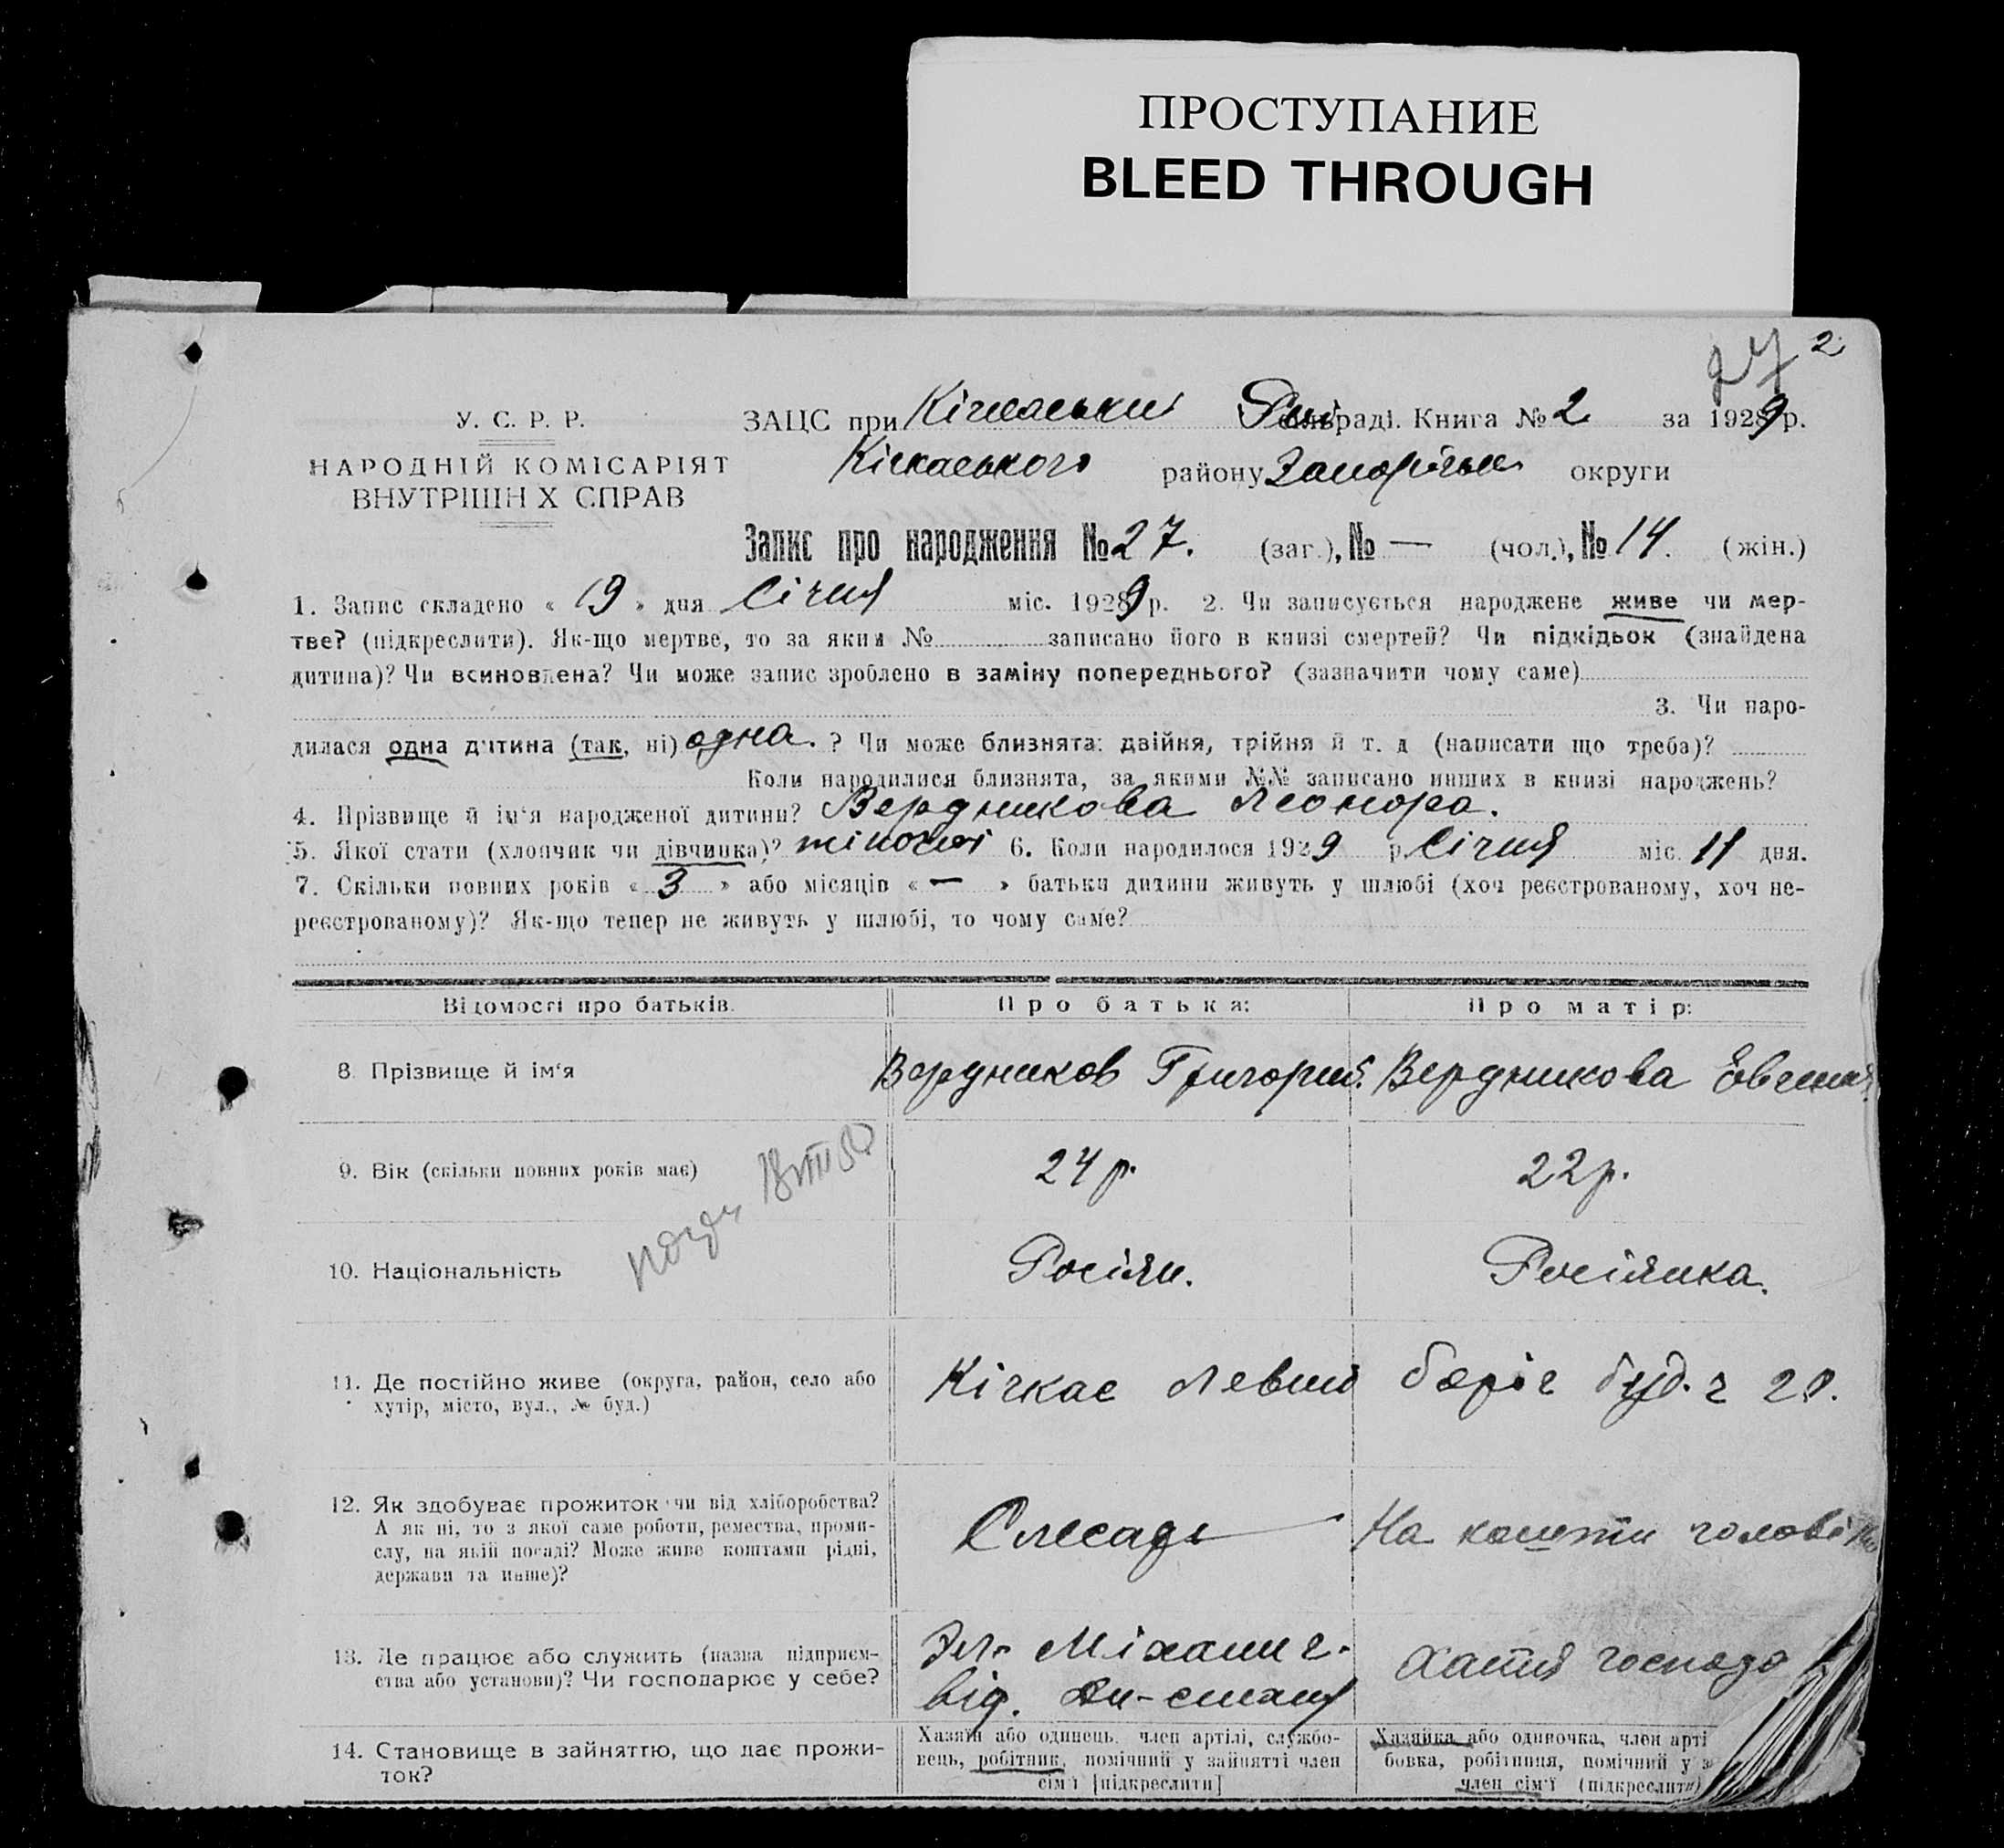 ПРОСТУПАНИЕ
BLEED THROUGH
27 2
У. С. Р. Р.
НАРОДНІЙ КОМІСАРІЯТ
ВНУТРІШН Х СПРАВ
ЗАЦС при Кічкаський раді. Книга № 2 за 1929 р.
Кічкаського району Запоріжськ округи
Запис про народження № 27. (заг.), № — (чол.), № 14. (жін.)
1. Запис складено « 19 » дня Січня міс. 1929 р. 2. Чи записується народжене живе чи мер-
тве? (підкреслити). Як-що мертве, то за яким № записано його в книзі смертей? Чи підкідьок (знайдена
дитина)? Чи всиновлена? Чи може запис зроблено в заміну попереднього? (зазначити чому саме)
3. Чи наро-
дилася одна дитина (так, ні) одна. ? Чи може близнята: двійня, трійня й т. д (написати що треба)?
Коли народилися близнята, за якими №№ записано инших в книзі народжень?
4. Прізвище й ім'я народженої дитини? Вердникова Леонора.
5. Якої стати (хлопчик чи дівчинка)? жіночої 6. Коли народилося 1929 р. Січня міс. 11 дня.
7. Скільки повних років « 3 » або місяців « — » батьки дитини живуть у шлюбі (хоч реєстрованому, хоч не-
реєстрованому)? Як-що тепер не живуть у шлюбі, то чому саме?
Відомості про батьків.
Про батька:
Про матір:
8. Прізвище й ім'я
Вердников Григорий.
Вердникова Евгения
9. Вік (скільки повних років має)
24 р.
22 р.
10. Національність
Росіян.
Росіянка.
11. Де постійно живе (округа, район, село або
хутір, місто, вул., № буд.)
Кічкас Левий беріг буд. ч 20.
12. Як здобуває прожиток чи від хліборобства?
А як ні, то з якої саме роботи, ремества, проми-
слу, на якій посаді? Може живе коштами рідні,
держави та инше)?
Слесарь
На кошти чоловіка
13. Де працює або служить (назва підприєм-
ства або установи)? Чи господарює у себе?
Эл. Міханич.
від.
Хатня господа
14. Становище в зайняттю, що дає прожи-
ток?
Хазяїн або одинець, член артілі, службо-
вець, робітник, помічний у зайнятті член
сім'ї [підкреслити]
Хазяйка або одиночка, член арті
бовка, робітниця, помічний у з
член сім'ї (підкреслити)